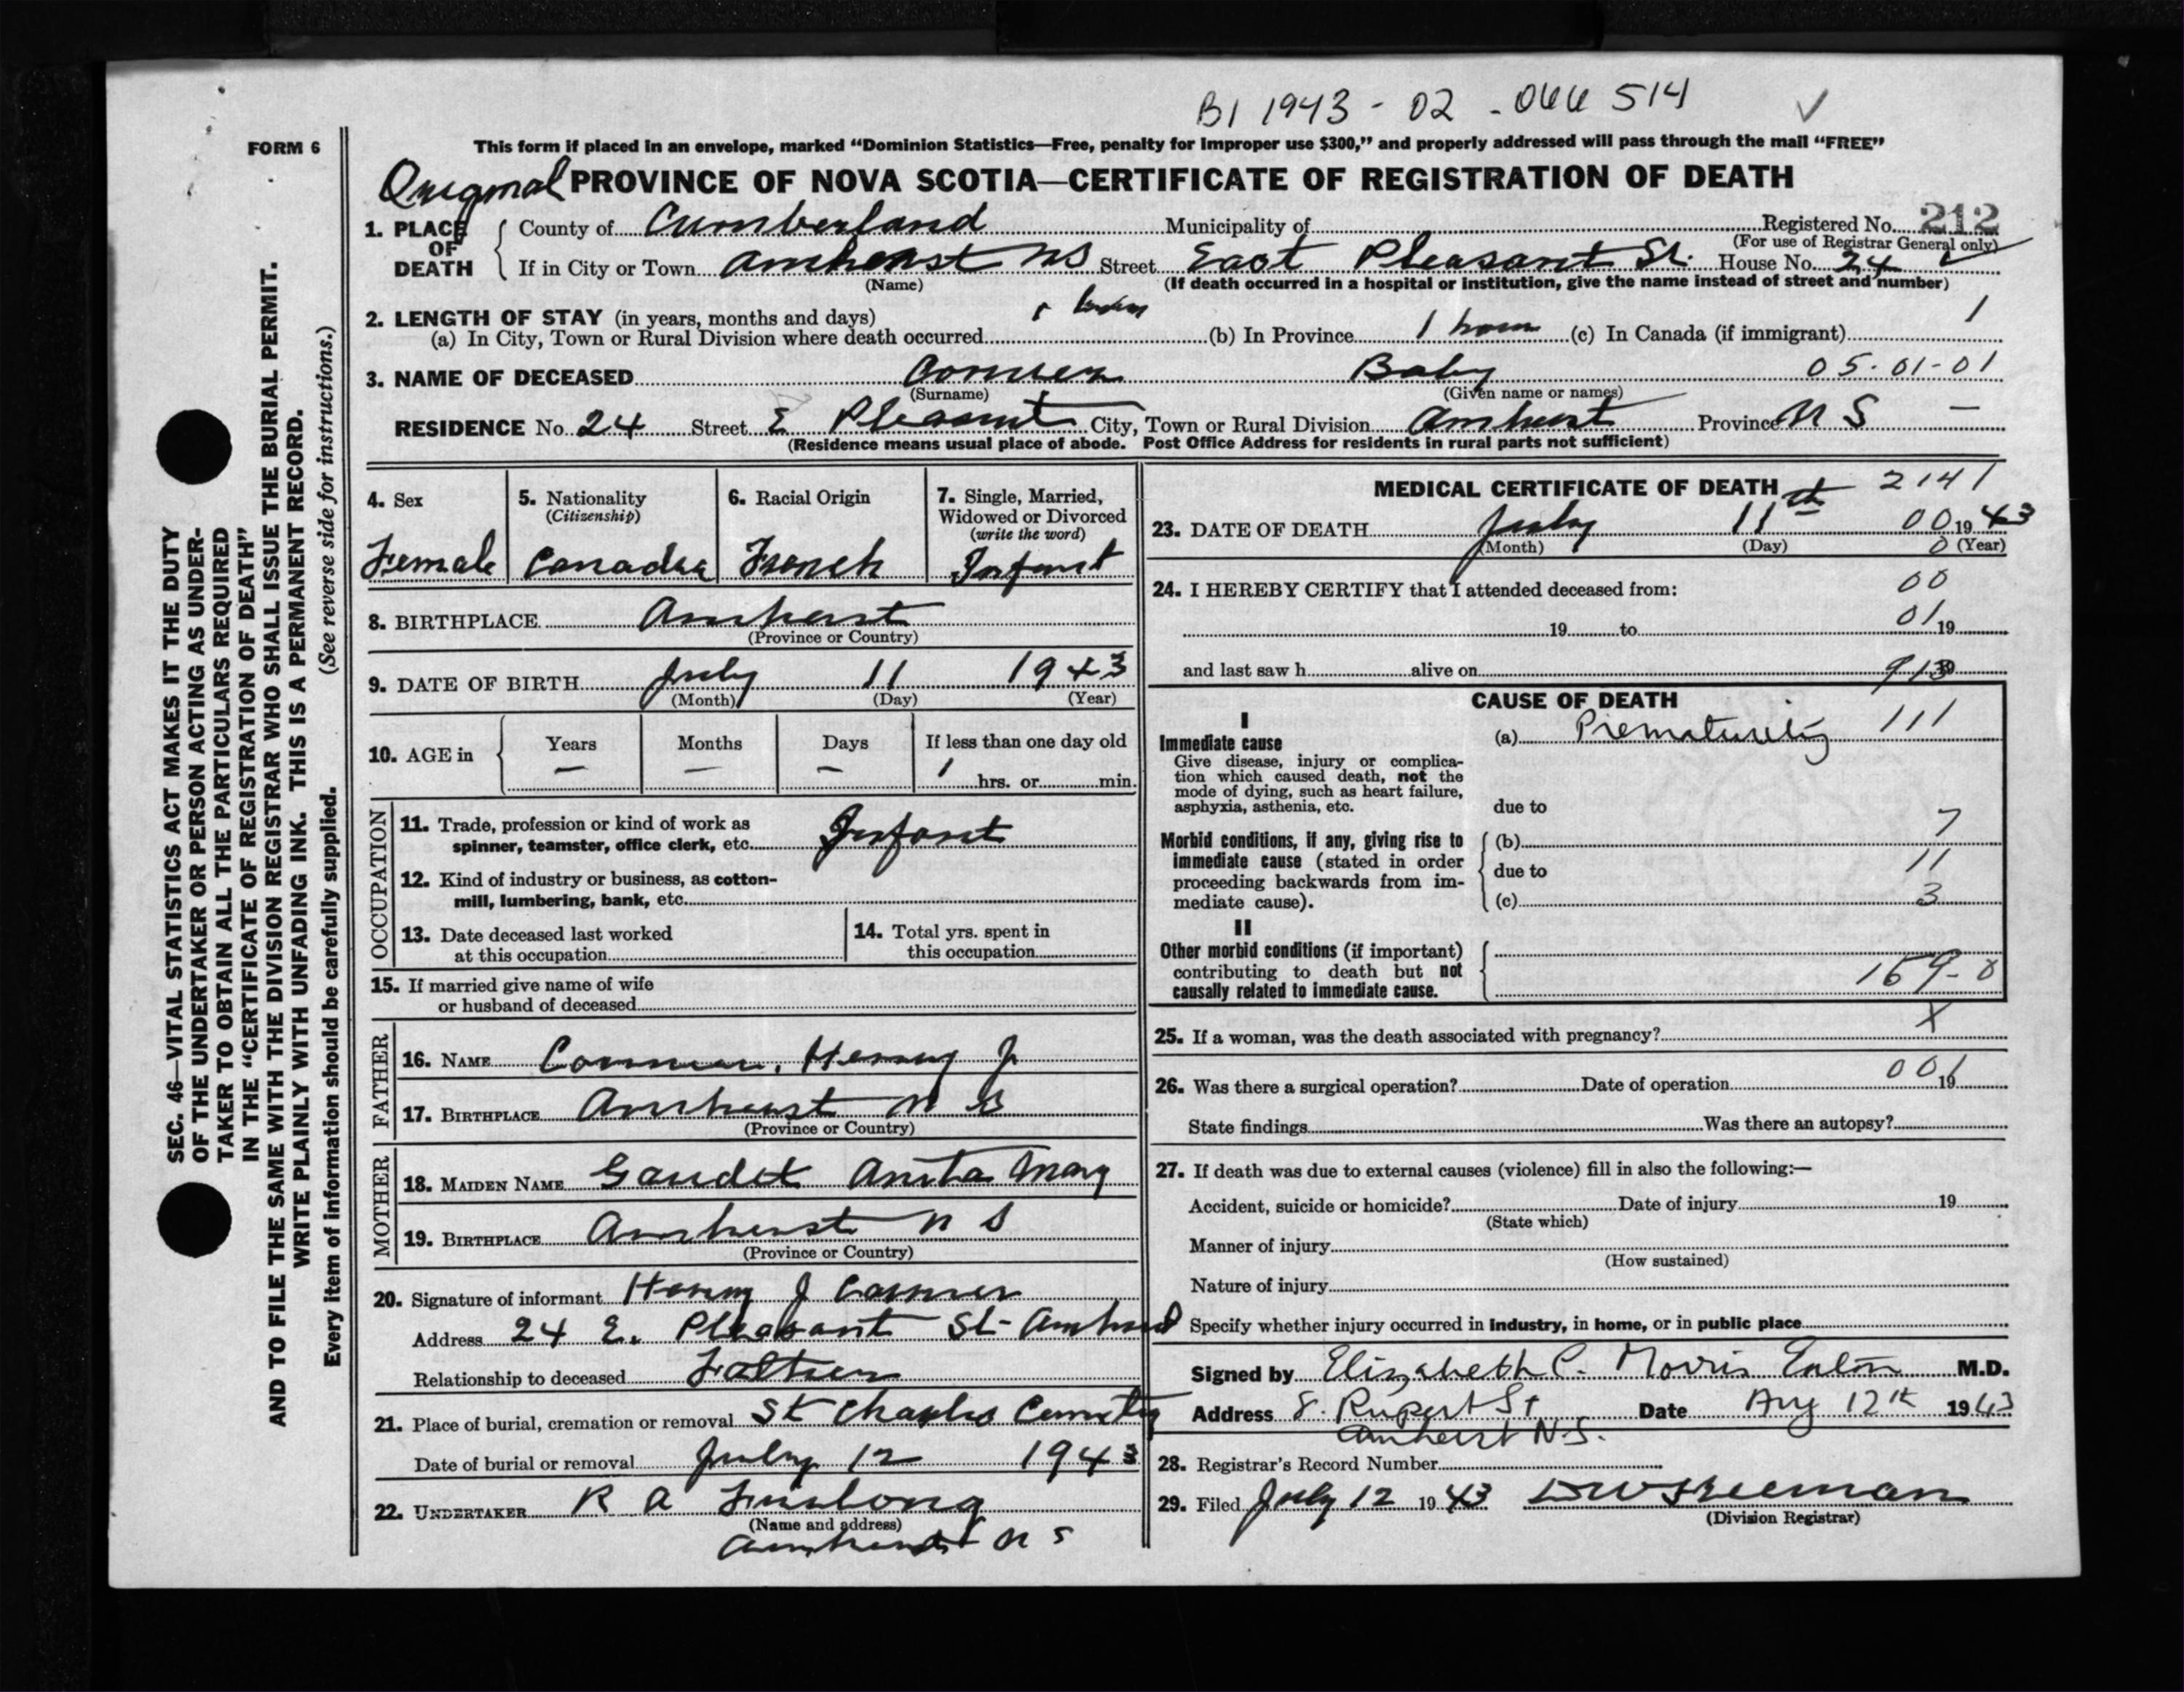 B1 1943 - 02 - 066 514 ✓
FORM 6
This form if placed in an envelope, marked “Dominion Statistics—Free, penalty for improper use $300,” and properly addressed will pass through the mail “FREE”
Original PROVINCE OF NOVA SCOTIA—CERTIFICATE OF REGISTRATION OF DEATH
1. PLACE OF DEATH County of Cumberland Municipality of Registered No. 212
(For use of Registrar General only)
If in City or Town Amherst NS Street East Pleasant St. House No. 24
(Name) (If death occurred in a hospital or institution, give the name instead of street and number)
2. LENGTH OF STAY (in years, months and days)
(a) In City, Town or Rural Division where death occurred (b) In Province 1 hour (c) In Canada (if immigrant) 1
3. NAME OF DECEASED Baby 05-01-01
(Surname) (Given name or names)
RESIDENCE No. 24 Street E Pleasant City, Town or Rural Division Amherst Province N S —
(Residence means usual place of abode. Post Office Address for residents in rural parts not sufficient)
4. Sex
Female
5. Nationality
(Citizenship)
6. Racial Origin
French
7. Single, Married,
Widowed or Divorced
(write the word)
Infant
8. BIRTHPLACE Amherst
(Province or Country)
9. DATE OF BIRTH July 11 1943
(Month) (Day) (Year)
10. AGE in Years Months Days If less than one day old
— — — 1 hrs. or min.
OCCUPATION
11. Trade, profession or kind of work as
spinner, teamster, office clerk, etc. Infant
12. Kind of industry or business, as cotton-
mill, lumbering, bank, etc.
13. Date deceased last worked
at this occupation
14. Total yrs. spent in
this occupation
15. If married give name of wife
or husband of deceased
FATHER
16. NAME Henry J
17. BIRTHPLACE Amherst N S
(Province or Country)
MOTHER
18. MAIDEN NAME Gaudet Anita Mary
19. BIRTHPLACE Amherst N S
(Province or Country)
20. Signature of informant Henry J
Address 24 E. Pleasant St- Amherst
Relationship to deceased Father
21. Place of burial, cremation or removal St Charles Cemetery
Date of burial or removal July 12 1943
22. UNDERTAKER R A Furlong
(Name and address)
Amherst N S
MEDICAL CERTIFICATE OF DEATH 2141
23. DATE OF DEATH July 11th 00 1943
(Month) (Day) 0 (Year)
24. I HEREBY CERTIFY that I attended deceased from: 00
19 to 01 19
and last saw h alive on 19
CAUSE OF DEATH
I
Immediate cause (a) Prematurity 111
Give disease, injury or complica-
tion which caused death, not the
mode of dying, such as heart failure,
asphyxia, asthenia, etc. due to
Morbid conditions, if any, giving rise to (b) 7
immediate cause (stated in order due to 11
proceeding backwards from im-
mediate cause). (c) 3
II
Other morbid conditions (if important)
contributing to death but not 159-0
causally related to immediate cause.
25. If a woman, was the death associated with pregnancy? X
26. Was there a surgical operation? Date of operation 001 19
State findings Was there an autopsy?
27. If death was due to external causes (violence) fill in also the following:—
Accident, suicide or homicide? Date of injury 19
(State which)
Manner of injury
(How sustained)
Nature of injury
Specify whether injury occurred in industry, in home, or in public place
Signed by Elizabeth C. Morris Eaton M.D.
Address 8. Rupert St Date Aug 12th 1943
Amherst N.S.
28. Registrar's Record Number
29. Filed July 12 1943 DW Freeman
(Division Registrar)
SEC. 46—VITAL STATISTICS ACT MAKES IT THE DUTY
OF THE UNDERTAKER OR PERSON ACTING AS UNDER-
TAKER TO OBTAIN ALL THE PARTICULARS REQUIRED
IN THE “CERTIFICATE OF REGISTRATION OF DEATH”
AND TO FILE THE SAME WITH THE DIVISION REGISTRAR WHO SHALL ISSUE THE BURIAL PERMIT.
WRITE PLAINLY WITH UNFADING INK. THIS IS A PERMANENT RECORD.
Every item of information should be carefully supplied. (See reverse side for instructions.)